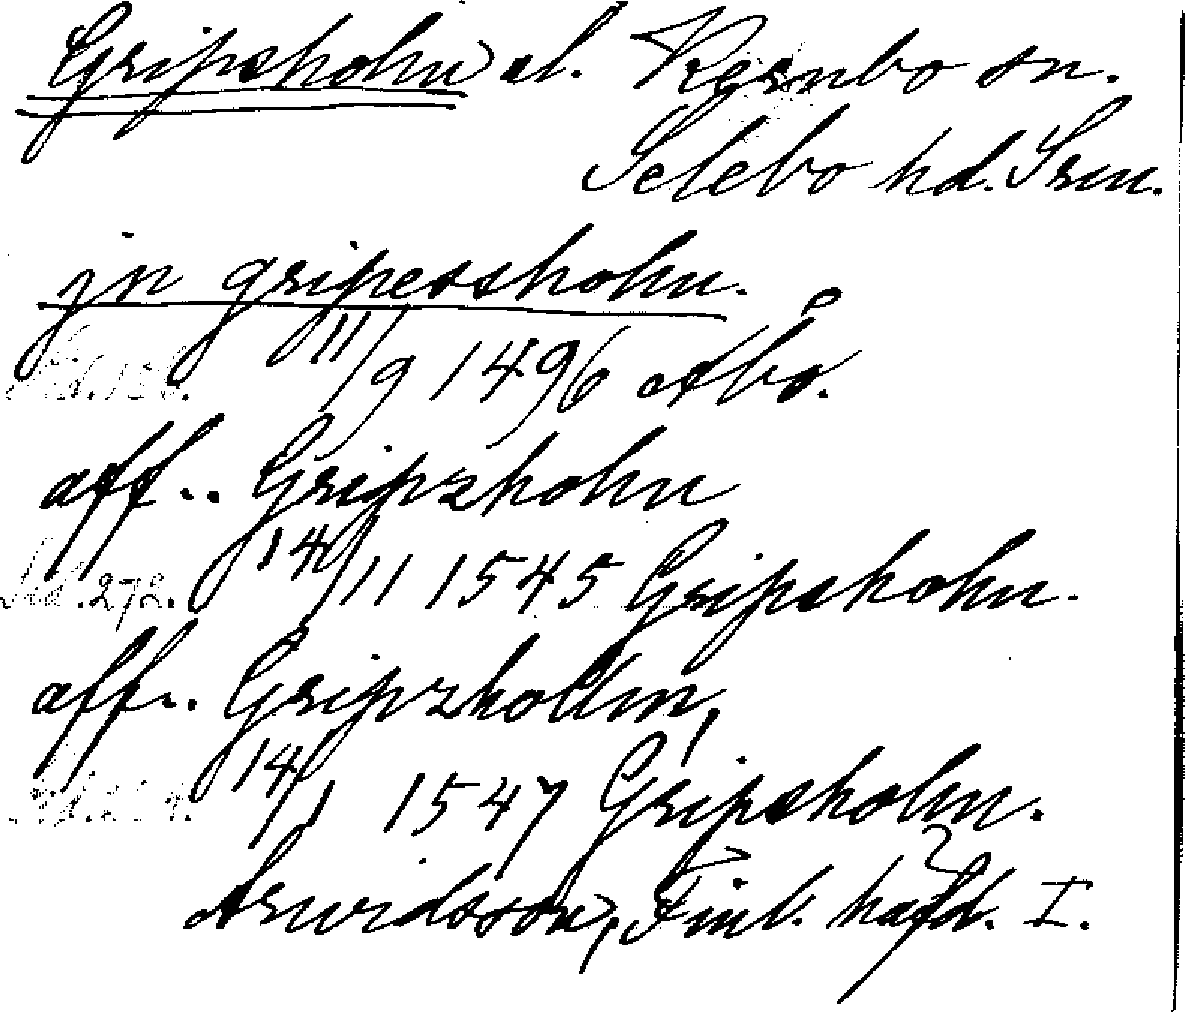 Gripsholm sl. Kernbo sn.
Selebo hd. Srm.
jn gripesholm.
11/9 1496 Åbo.
aff.. Gripzholm
Sid. 272. 14/11 1545 Gripsholm.
aff.. Gripzhollm,
14/1 1547 Gripsholm.
Arwidsson, Finl. häfd. I.